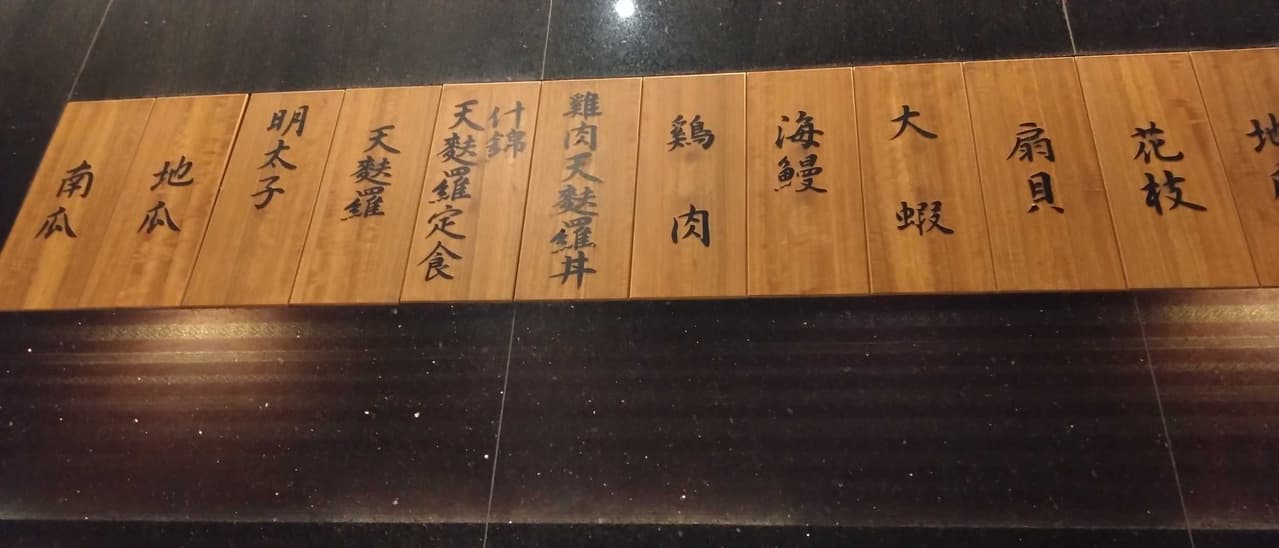 地
花枝
扇貝
大蝦
海鰻
鶏肉
雞肉天麩羅丼
什錦
天麩羅定食
天麩羅
明太子
地瓜
南瓜